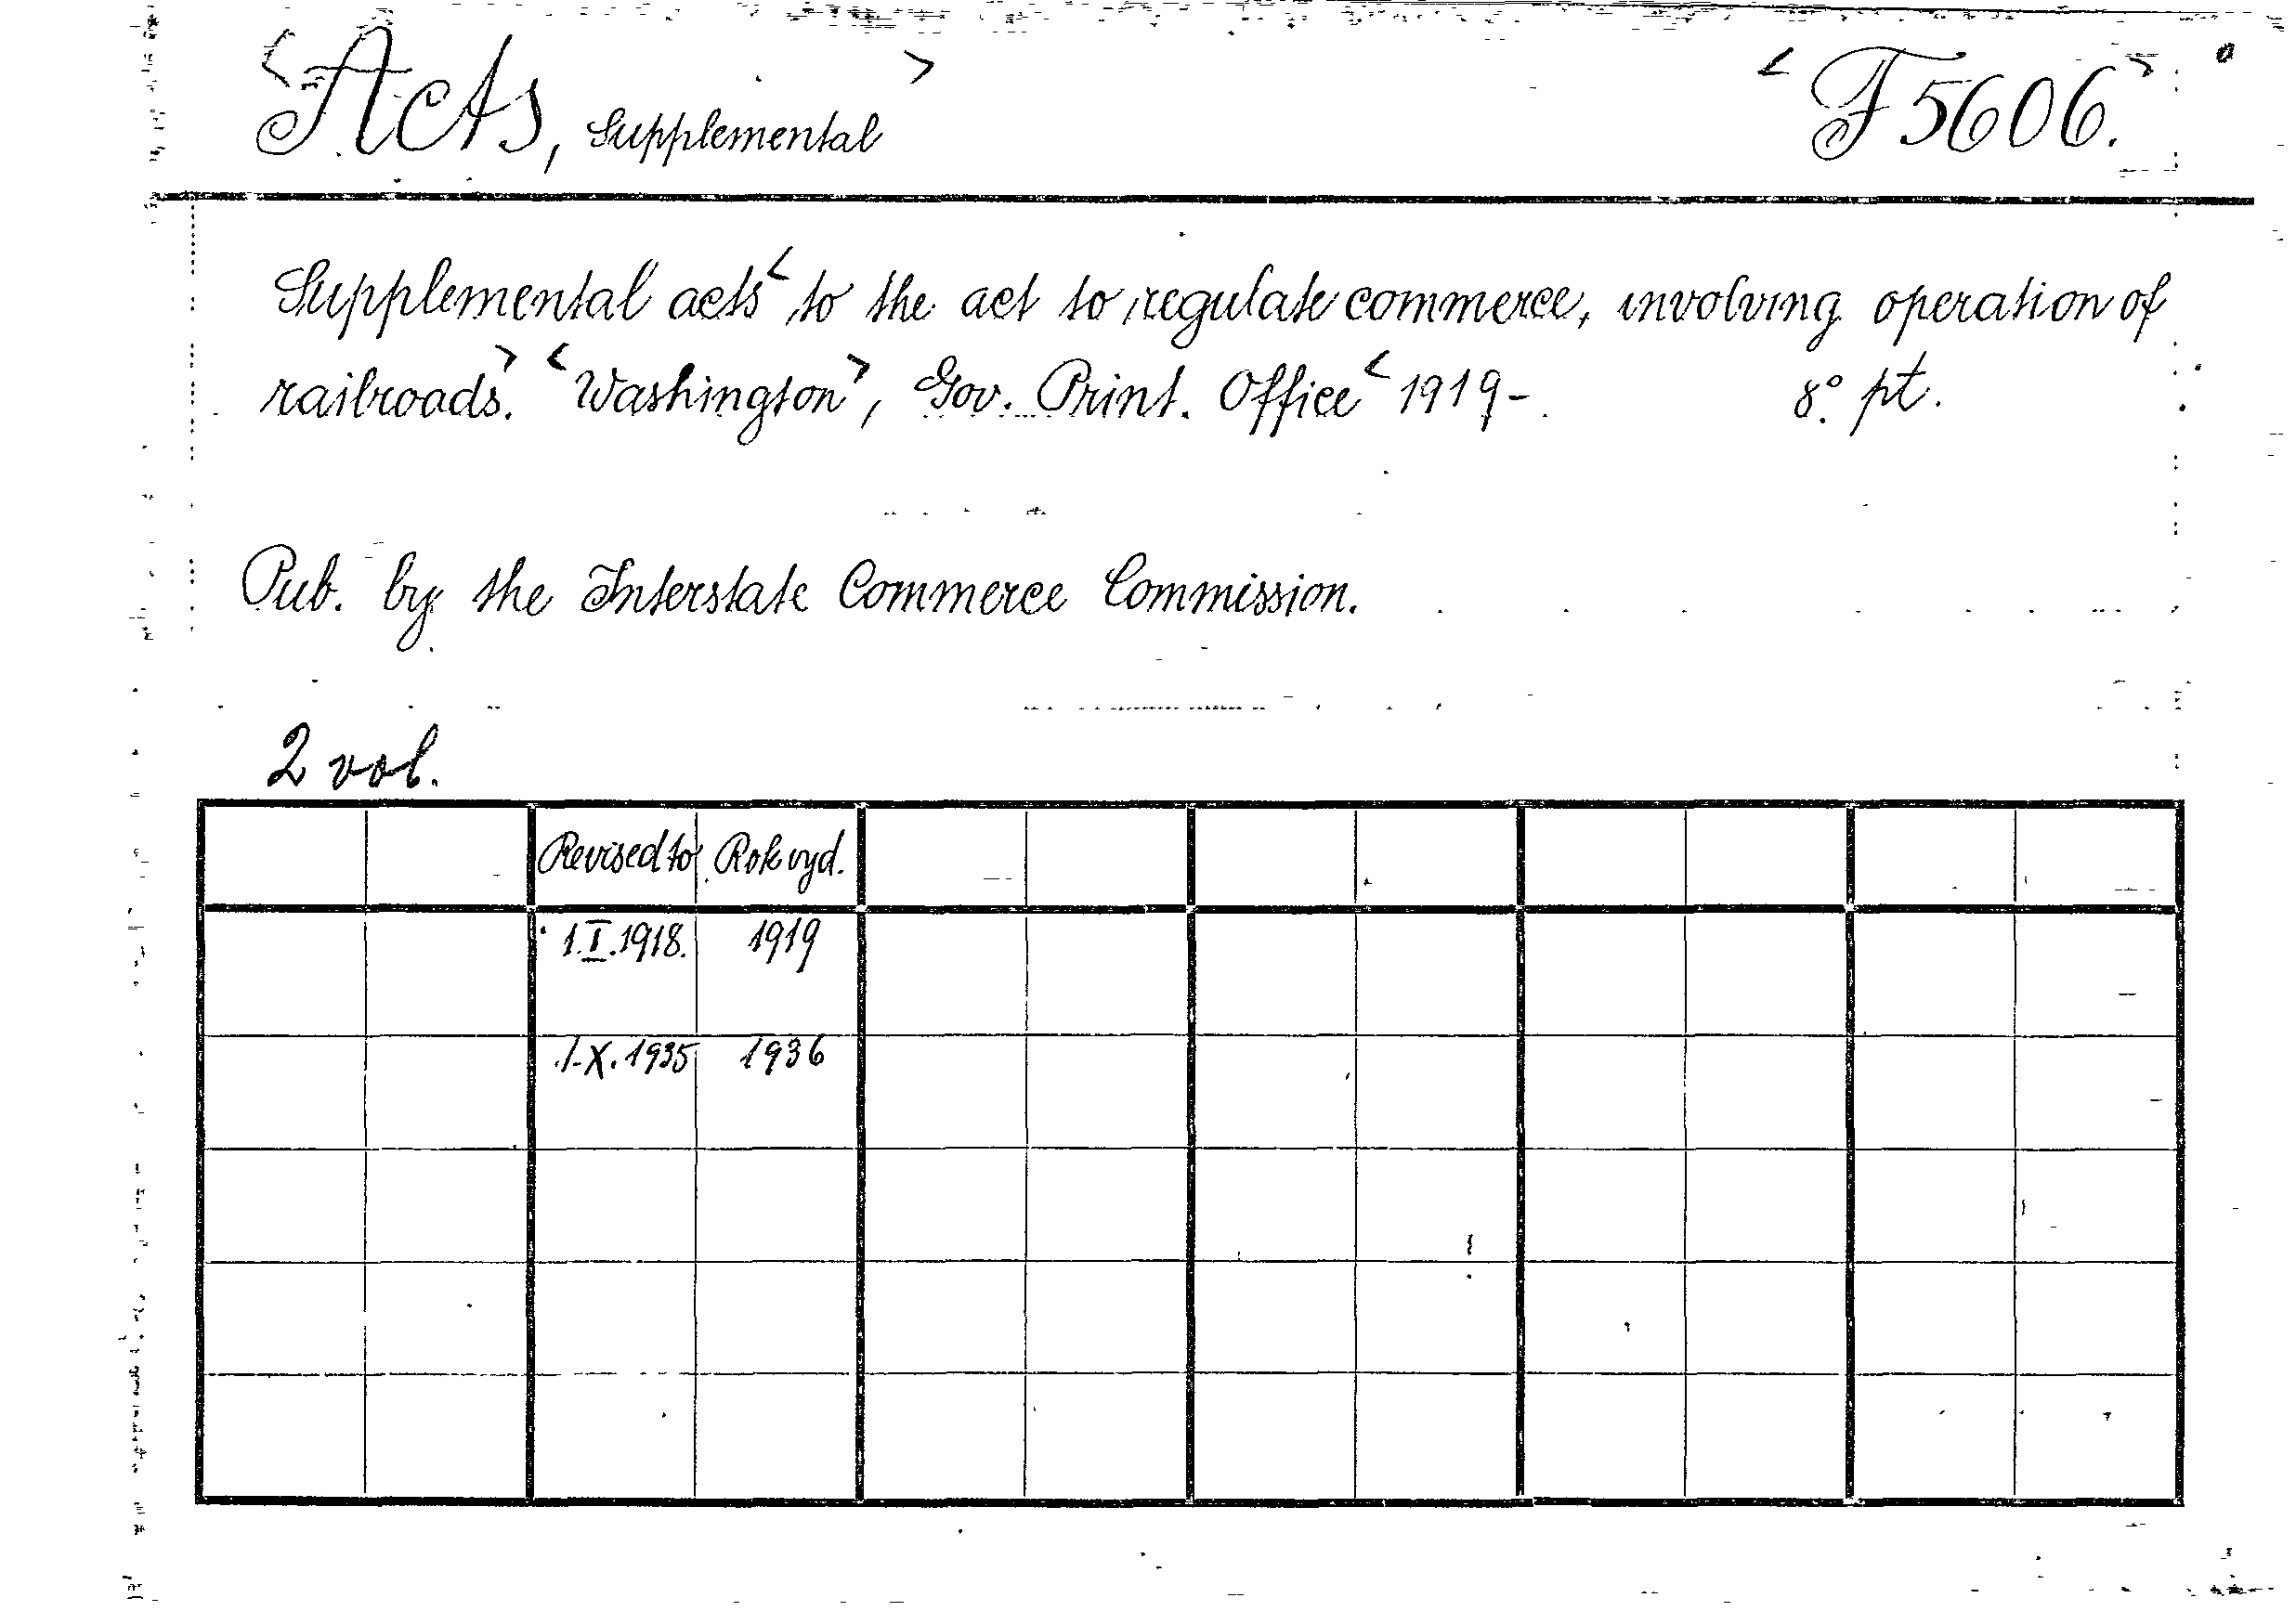 <Acts, Supplemental>
<F 5606.>
Supplemental acts< to the act to regulate commerce, involving operation of
railroads.> <Washington>, Gov. Print. Office< 1919-. 8° pt.
Pub. by the Interstate Commerce Commission.
2 vol.
Revised to Rok vyd.
1.I.1918. 1919
1.X.1935 1936